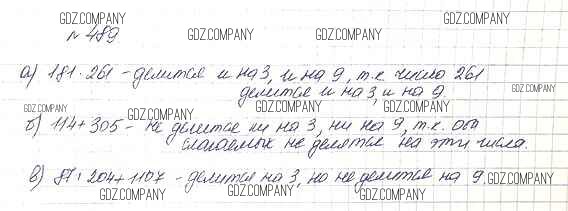 GDZ.COMPANY
№ 489
GDZ.COMPANY GDZ.COMPANY GDZ.COMPANY
а) 181·261 - делится и на 3, и на 9, т.к. число 261
делится и на 3, и на 9.
GDZ.COMPANY GDZ.COMPANY GDZ.COMPANY GDZ.COMPANY
б) 114+305 - не делится ни на 3, ни на 9, т.к. оба
слагаемых не делятся на эти числа.
в) 87·204+1107 - делится на 3, но не делится на 9.
GDZ.COMPANY GDZ.COMPANY GDZ.COMPANY GDZ.COMPANY